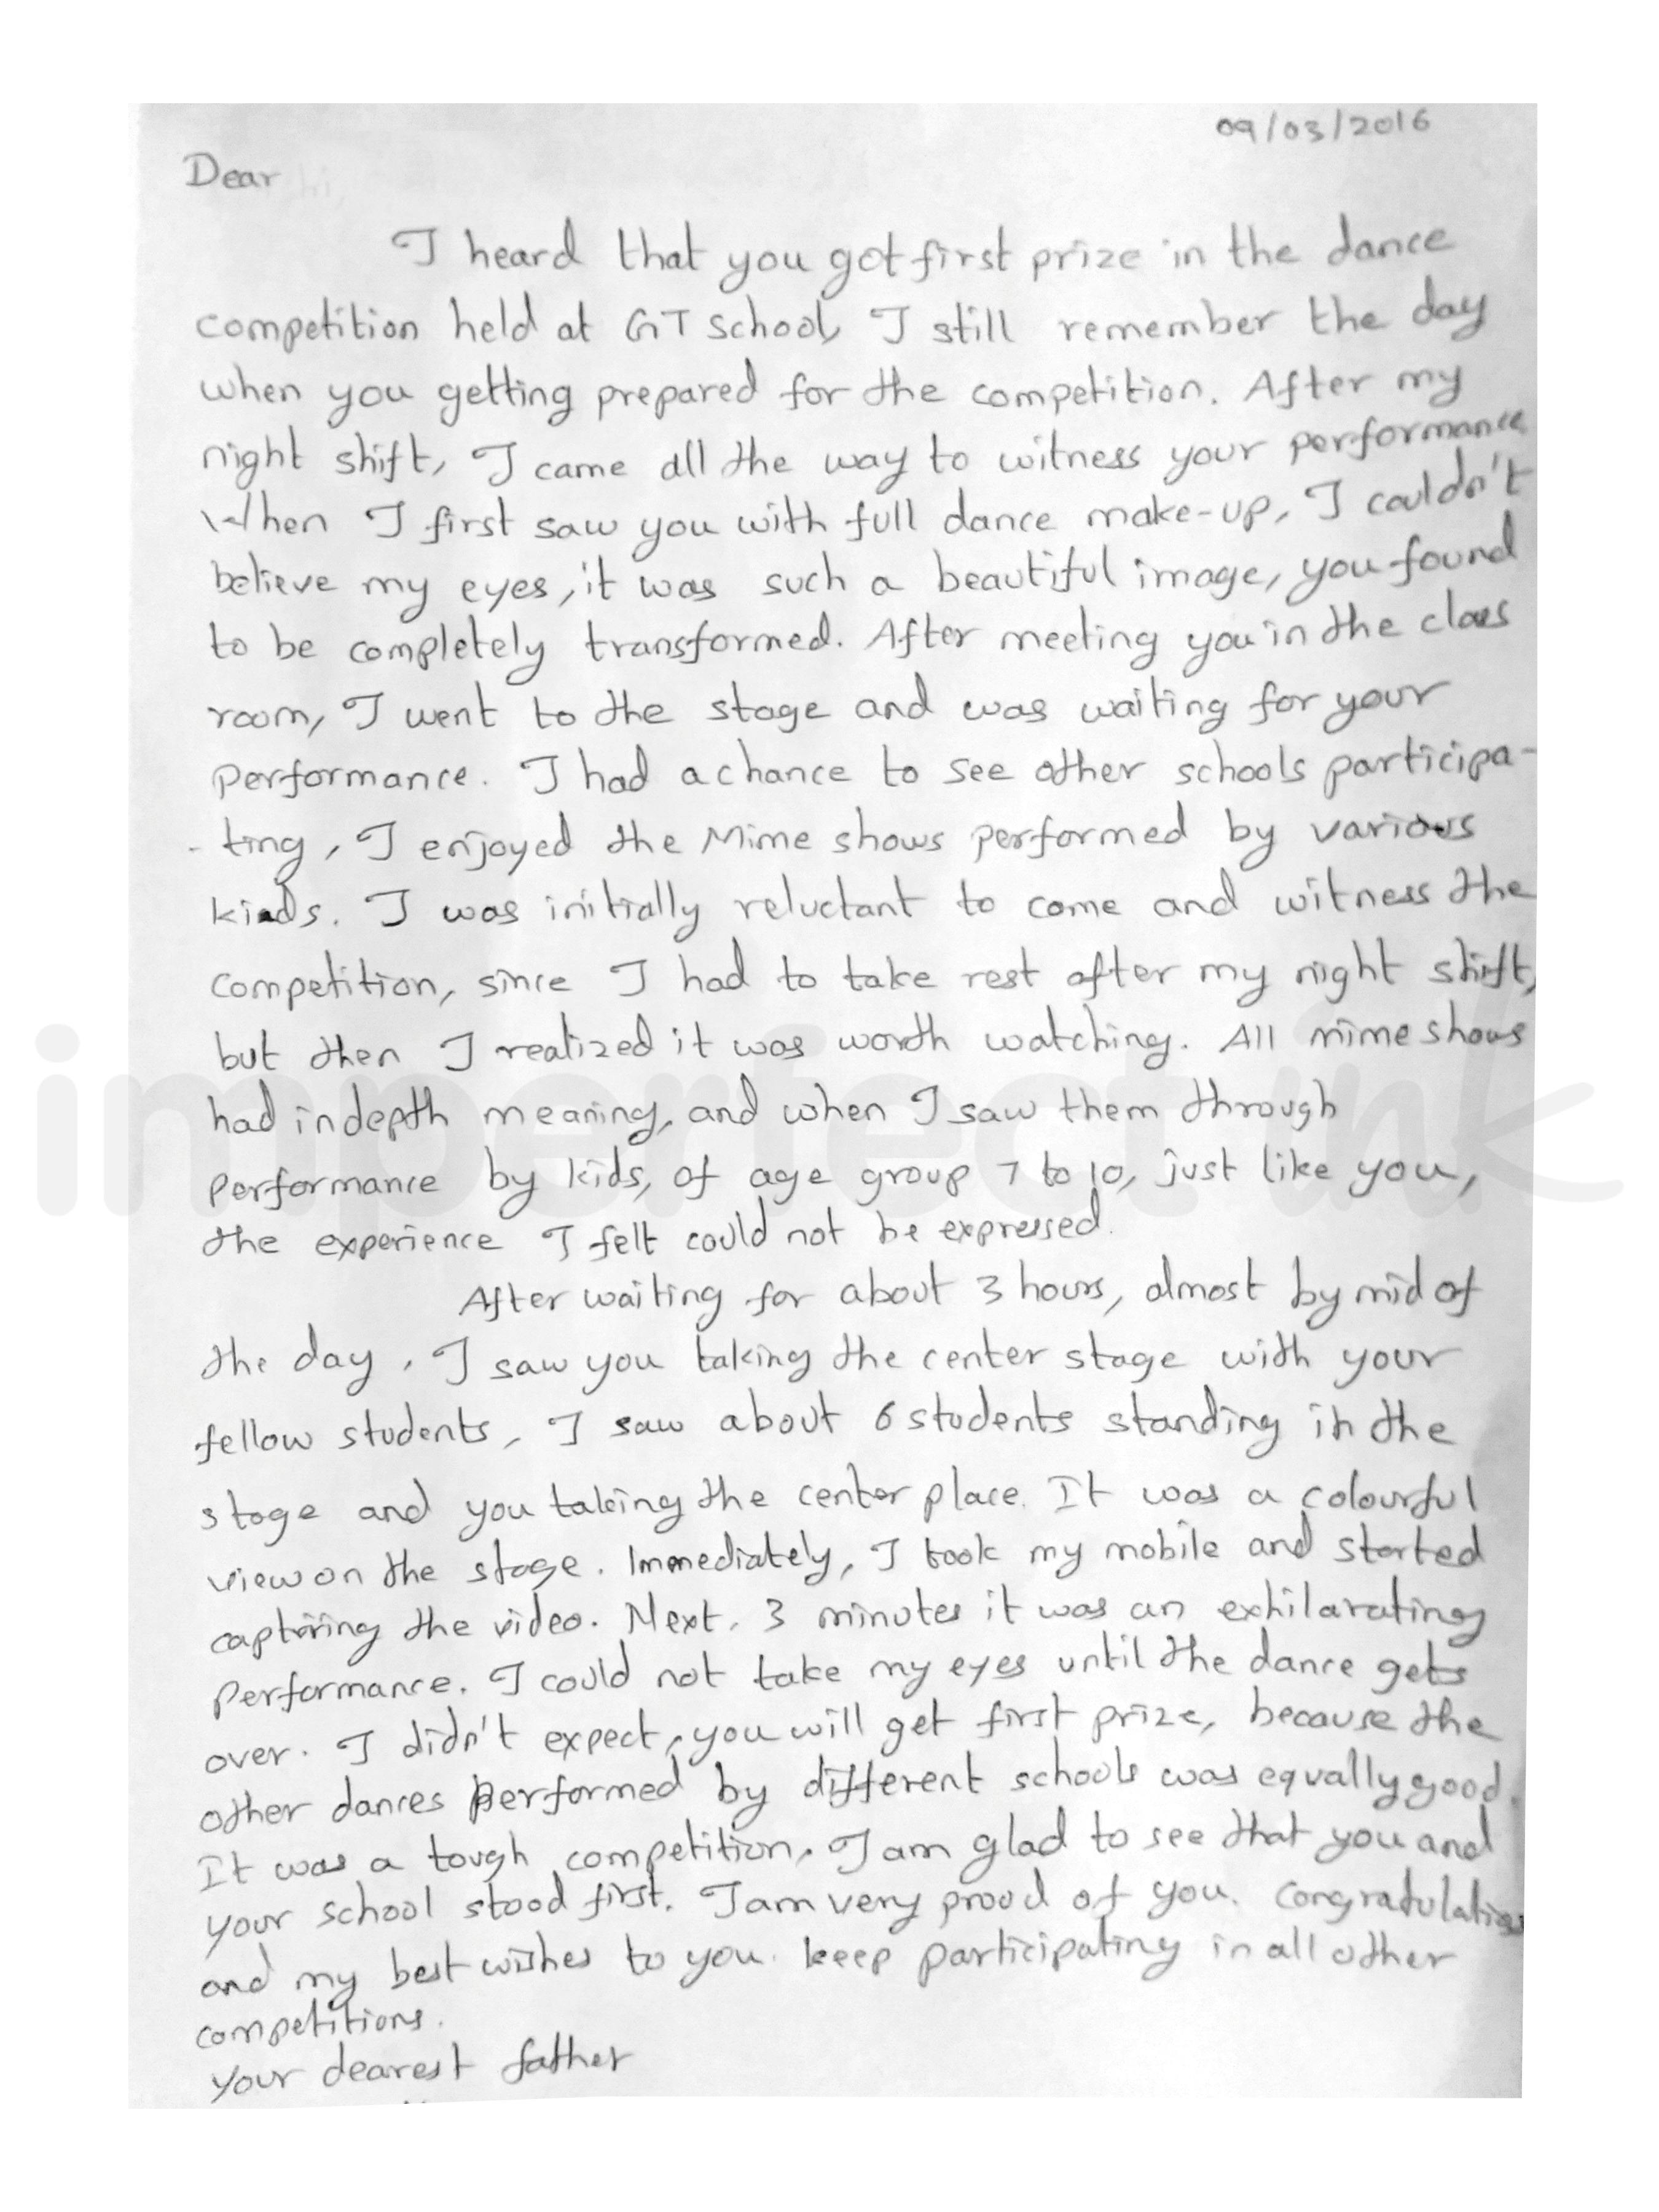 09/03/2016
Dear
I heard that you got first prize in the dance
competition held at GT school, I still remember the day
when you getting prepared for the competition. After my
night shift, I came all the way to witness your performance
When I first saw you with full dance make-up, I couldn't
believe my eyes, it was such a beautiful image, you found
to be completely transformed. After meeting you in the class
room, I went to the stage and was waiting for your
performance. I had a chance to see other schools participa-
-ting, I enjoyed the Mime shows performed by various
kids. I was initially reluctant to come and witness the
competition, since I had to take rest after my night shift,
but then I realized it was worth watching. All mime shows
had indepth meaning, and when I saw them through
performance by kids, of age group 7 to 10, just like you,
the experience I felt could not be expressed.
After waiting for about 3 hours, almost by mid of
the day, I saw you taking the center stage with your
fellow students, I saw about 6 students standing in the
stage and you taking the center place. It was a colourful
view on the stage. Immediately, I took my mobile and started
capturing the video. Next, 3 minutes it was an exhilarating
performance. I could not take my eyes until the dance gets
over. I didn't expect, you will get first prize, because the
other dances performed by different schools was equally good.
It was a tough competition. I am glad to see that you and
your school stood first. I am very proud of you. Congratulations
and my best wishes to you. keep participating in all other
competitions.
Your dearest father
imperfect ink